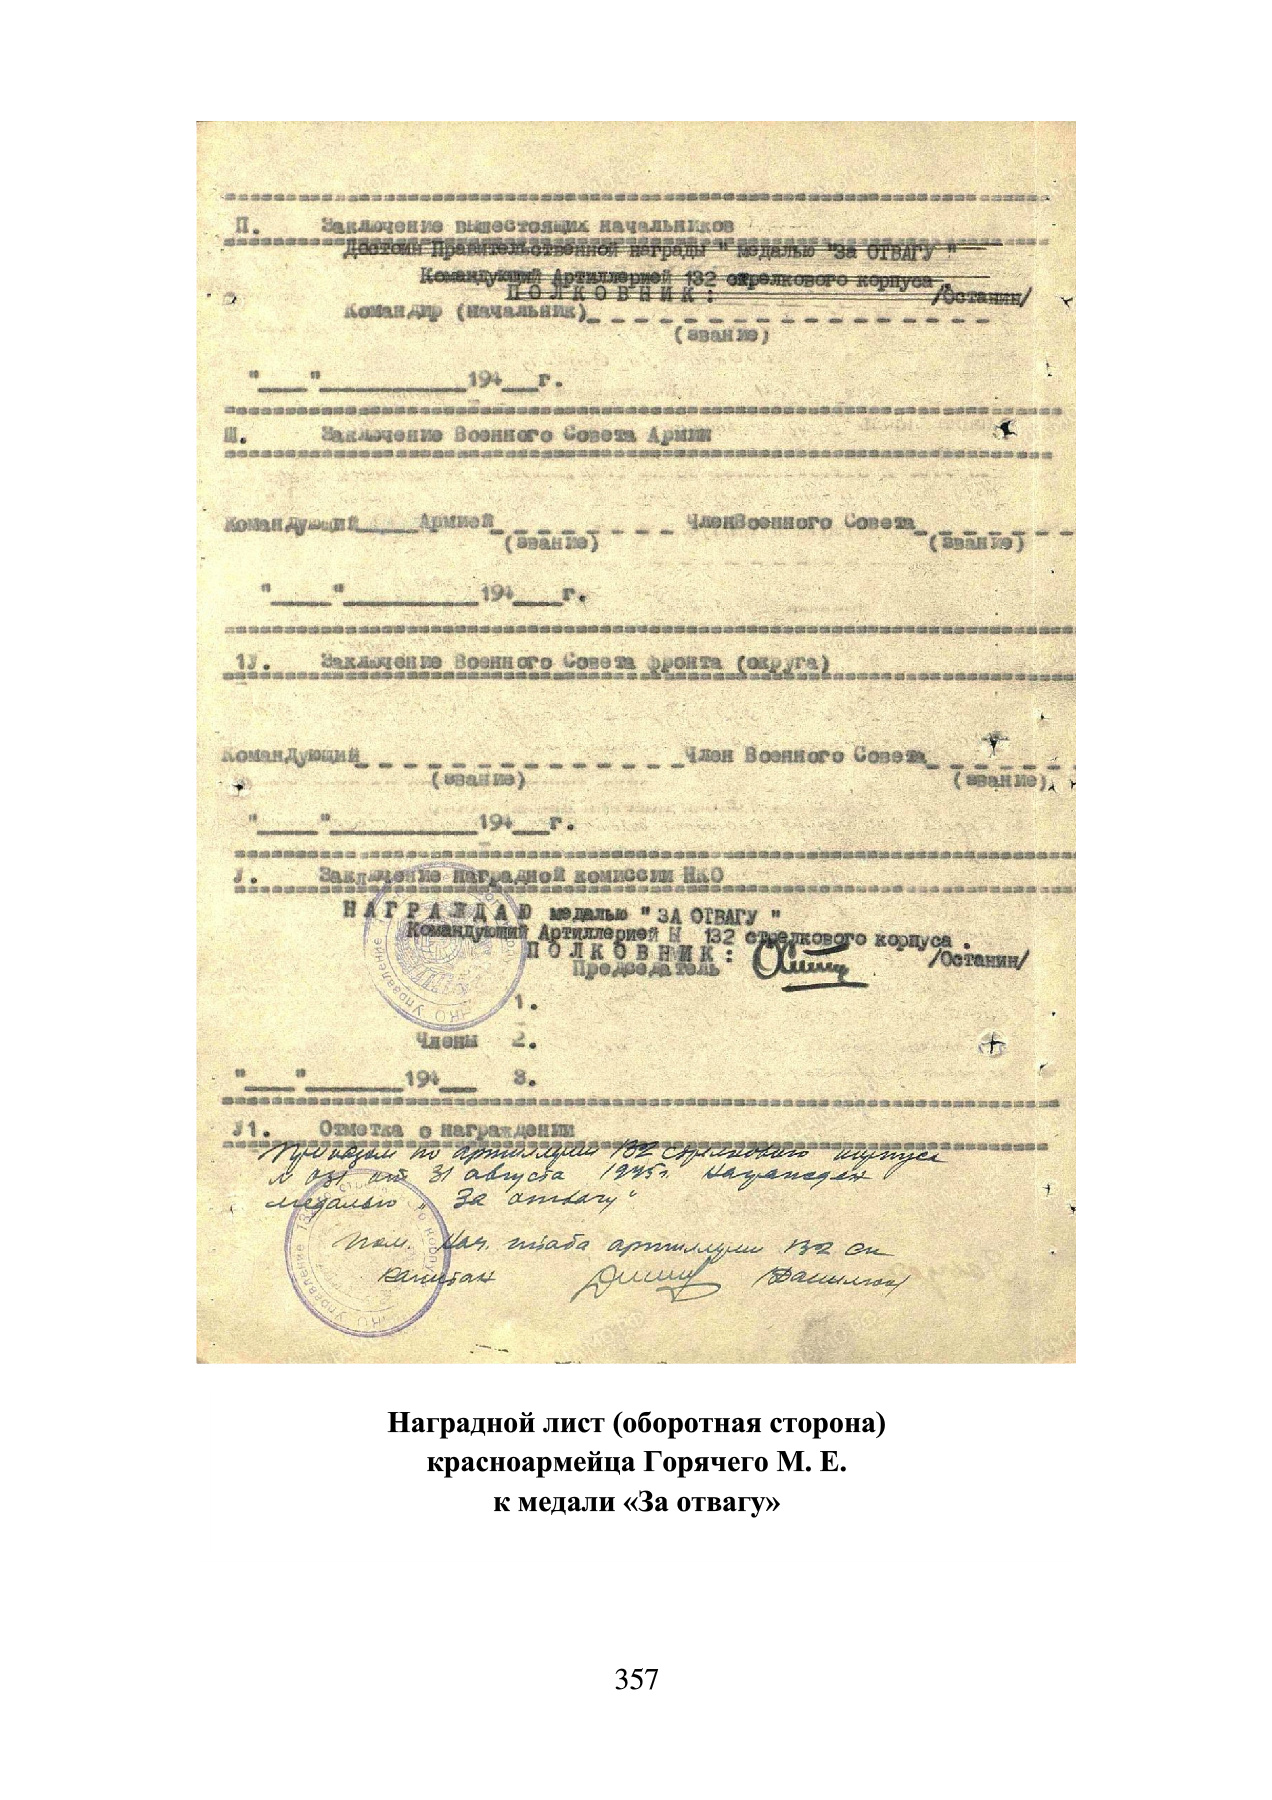 П. Заключение вышестоящих начальников
Достоин Правительственной награды " медалью "За ОТВАГУ "
Командующий Артиллерией 132 стрелкового корпуса .
ПОЛКОВНИК: /Останин/
Командир (начальник)
(звание)
"___"__________194__г.
Ш. Заключение Военного Совета Армии
Командующий____Армией ЧленВоенного Совета
(звание) (звание)
"____"_________194___г.
1У. Заключение Военного Совета фронта (округа)
Командующий Член Военного Совета
(звание) (звание)
"____"__________194__г.
У. Заключение наградной комиссии НКО
НАГРАЖДАЮ медалью " ЗА ОТВАГУ "
Командующий Артиллерией 132 стрелкового корпуса .
ПОЛКОВНИК: /Останин/
Председатель
1.
Члены 2.
"___"_______194__ 3.
У1. Отметка о награждении
Приказом по артиллерии 132 стрелкового корпуса
от 31 августа 1945г. награжден
медалью „За отвагу"
Пом. Нач. штаба артиллерии 132 ск
капитан
Наградной лист (оборотная сторона)
красноармейца Горячего М. Е.
к медали «За отвагу»
357